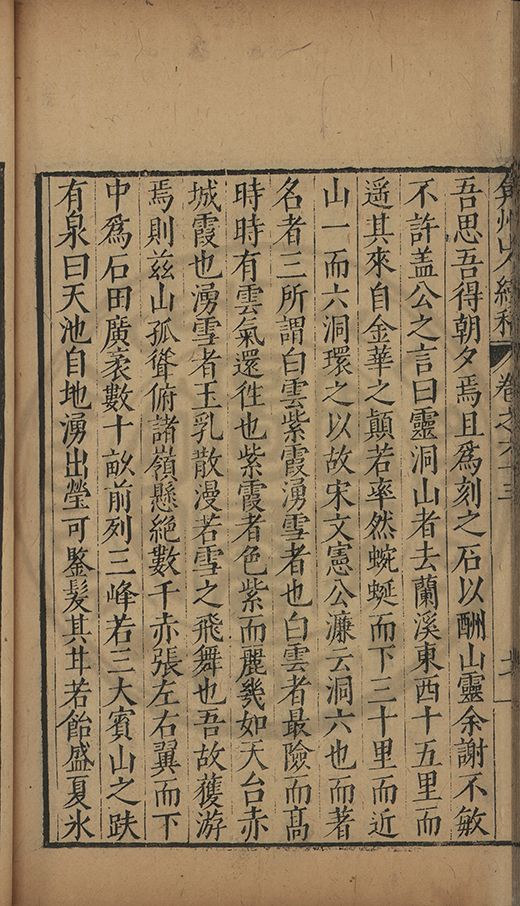 弇州山人續稿 卷之六十三
吾思吾得朝夕焉且爲刻之石以酬山靈余謝不敏
不許盖公之言曰靈洞山者去蘭溪東西十五里而
遥其來自金華之顛若率然蜿蜒而下三十里而近
山一而六洞環之以故宋文憲公濂云洞六也而著
名者三所謂白雲紫霞湧雪者也白雲者最險而高
時時有雲氣還徃也紫霞者色紫而麗幾如天台赤
城霞也湧雪者玉乳散漫若雪之飛舞也吾故蒦游
焉則兹山孤聳俯諸嶺懸絶數千赤張左右翼而下
中爲石田廣袤數十畝前列三峰若三大賓山之趺
有泉曰天池自地湧出瑩可鑒髮其甘若飴盛夏氷